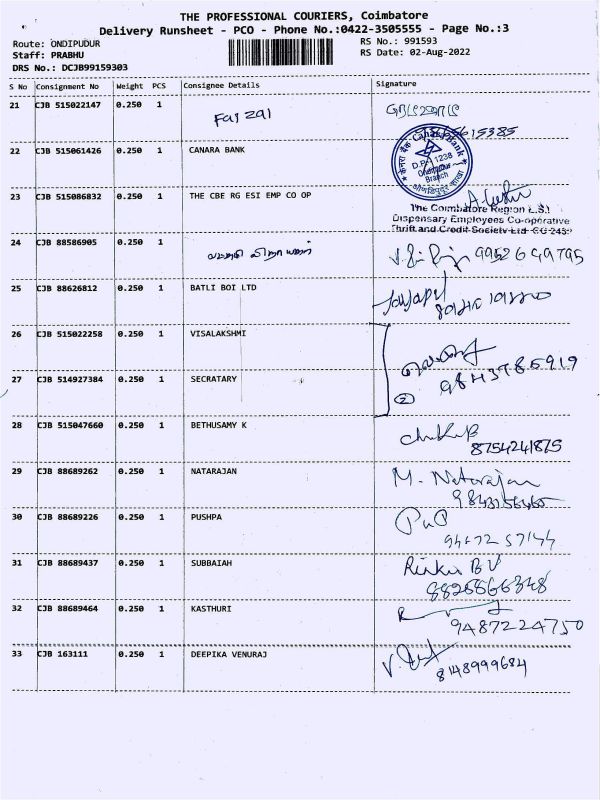 THE PROFESSIONAL COURIERS, Coimbatore
Delivery Runsheet - PCO - Phone No.:0422-3505555 - Page No.:3
Route: ONDIPUDUR RS No.: 991593
Staff: PRABHU RS Date: 02-Aug-2022
DRS No.: DCJB99159303
S No Consignment No Weight PCS Consignee Details Signature
21 CJB 515022147 0.250 1 Faizal
22 CJB 515061426 0.250 1 CANARA BANK
Canara Bank
D.P. 1238
Branch
23 CJB 515086832 0.250 1 THE CBE RG ESI EMP CO OP
The Coimbatore Region E.S.I
Dispensary Employees Co-operative
Thrift and Credit Society Ltd
24 CJB 88586905 0.250 1 9952649795
25 CJB 88626812 0.250 1 BATLI BOI LTD
26 CJB 515022258 0.250 1 VISALAKSHMI
27 CJB 514927384 0.250 1 SECRATARY 9843785919
2
28 CJB 515047660 0.250 1 BETHUSAMY K
8754241875
29 CJB 88689262 0.250 1 NATARAJAN M. Natarajan
30 CJB 88689226 0.250 1 PUSHPA
31 CJB 88689437 0.250 1 SUBBAIAH
8826866348
32 CJB 88689464 0.250 1 KASTHURI
9487224750
33 CJB 163111 0.250 1 DEEPIKA VENURAJ
8148999684